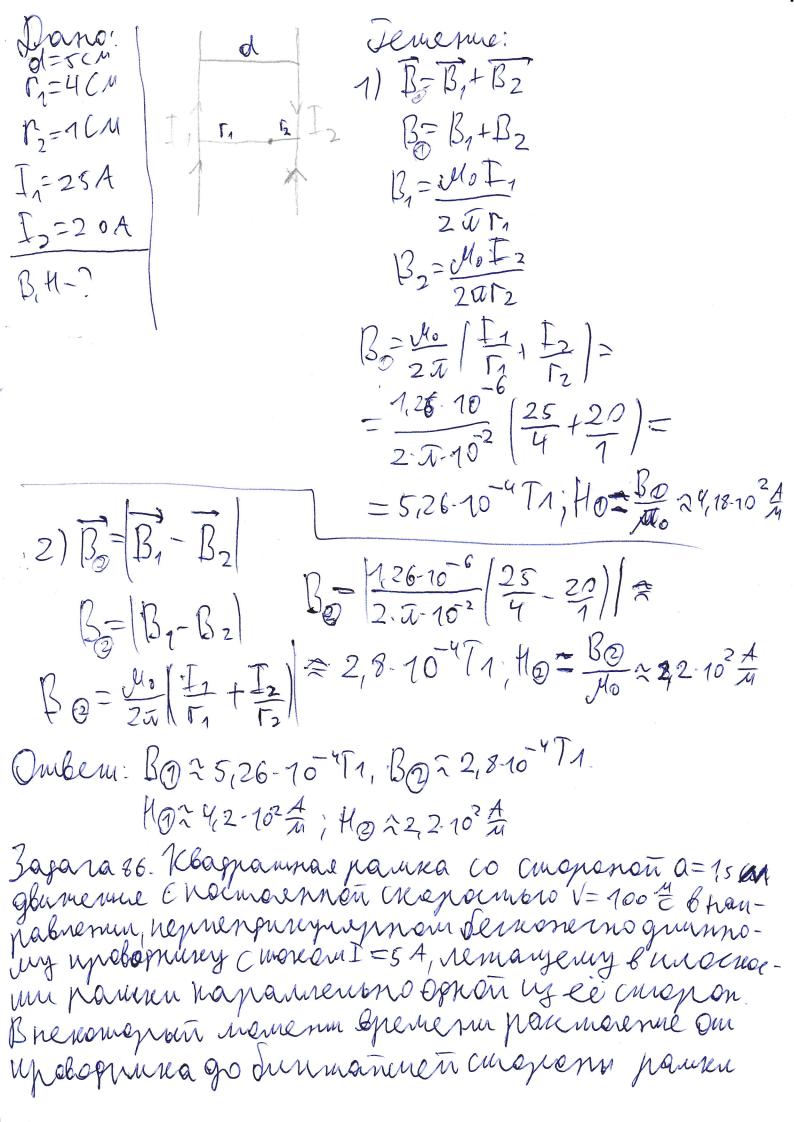 Дано:
d=5см
r₁=4см
r₂=1см
I₁=25А
I₂=20А
B, H-?
d
I₁ r₁ r₂ I₂
Решение:
1) B⃗①=B⃗₁+B⃗₂
B①=B₁+B₂
B₁=μ₀I₁/2πr₁
B₂=μ₀I₂/2πr₂
B①=μ₀/2π(I₁/r₁+I₂/r₂)=
=1,26·10⁻⁶/2·π·10⁻²(25/4+20/1)=
=5,26·10⁻⁴Тл; H①=B①/μ₀≈4,18·10² А/м
2) B⃗②=|B⃗₁-B⃗₂|
B②=|B₁-B₂|
B②=μ₀/2π|I₁/r₁+I₂/r₂|
B②=|1,26·10⁻⁶/2·π·10⁻²(25/4-20/1)|≈
≈2,8·10⁻⁴Тл; H②=B②/μ₀≈2,2·10² А/м
Ответ: B①≈5,26·10⁻⁴Тл, B②≈2,8·10⁻⁴Тл.
H①≈4,2·10² А/м; H②≈2,2·10² А/м
Задача 86. Квадратная рамка со стороной a=1
движется с постоянной скоростью V=100 м/с в нап-
равлении, перпендикулярном бесконечно длинно-
му проводнику с током I=5 А, лежащему в плоскос-
ти рамки параллельно одной из её сторон.
В некоторый момент времени расстояние от
проводника до ближайшей стороны рамки